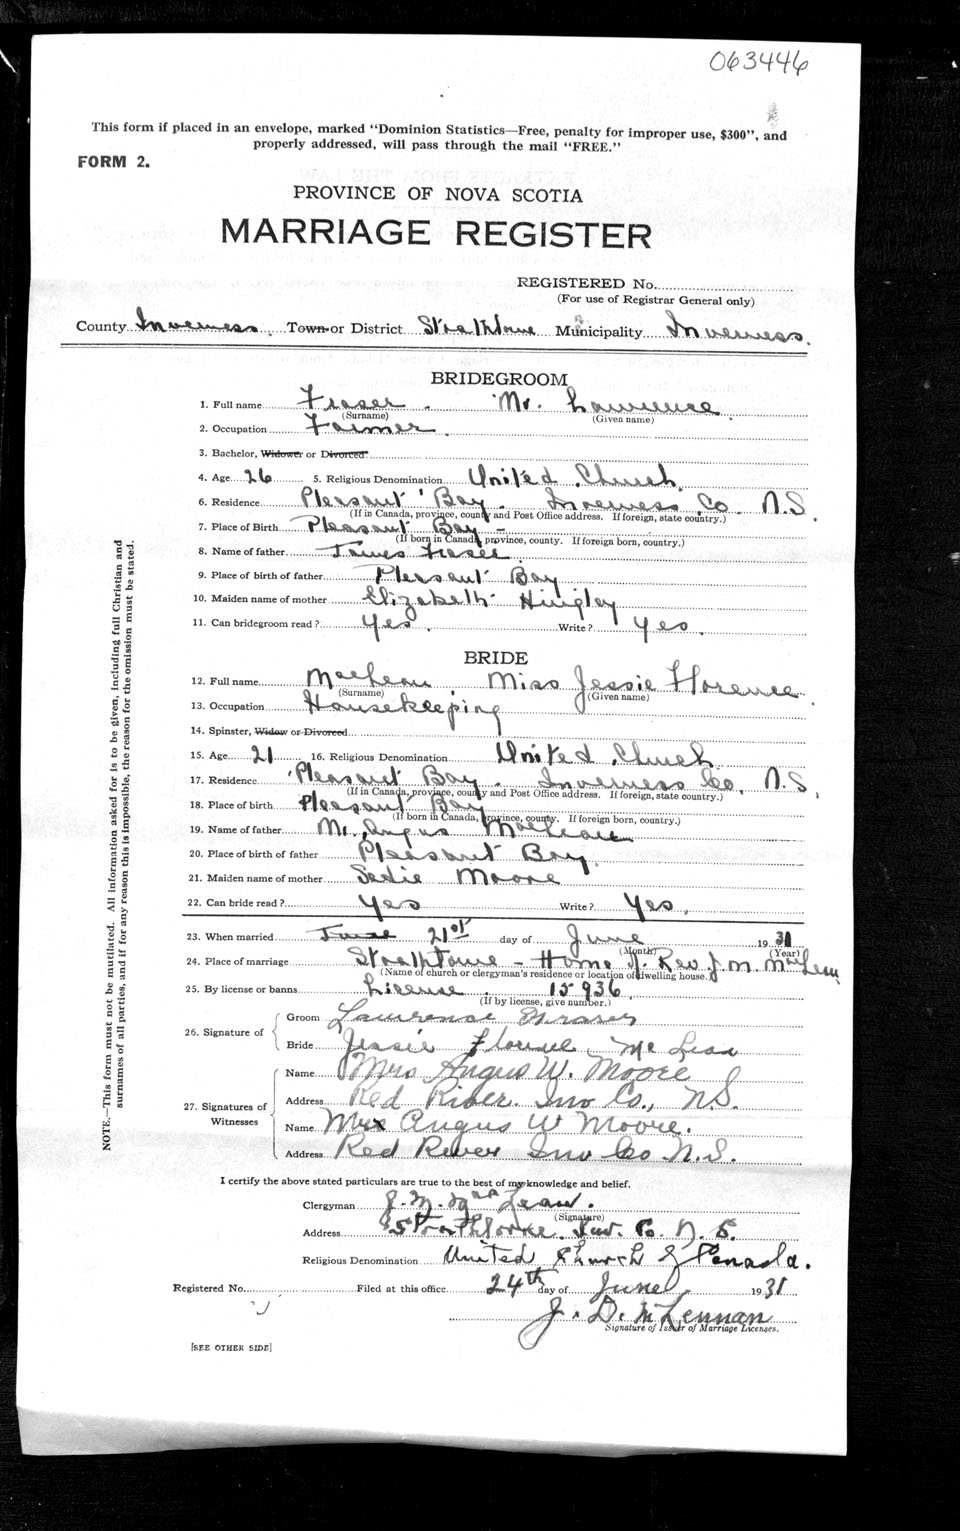 063446
This form if placed in an envelope, marked "Dominion Statistics—Free, penalty for improper use, $300", and
properly addressed, will pass through the mail "FREE."
FORM 2.
PROVINCE OF NOVA SCOTIA
MARRIAGE REGISTER
REGISTERED No.
(For use of Registrar General only)
County Inverness Town or District Strathlorne Municipality Inverness.
BRIDEGROOM
1. Full name Fraser. Mr. Lawrence
(Surname) (Given name)
2. Occupation Farmer
3. Bachelor, Widower or Divorced
4. Age 26 5. Religious Denomination United Church
6. Residence Pleasant Bay. Inverness Co. N.S.
(If in Canada, province, county and Post Office address. If foreign, state country.)
7. Place of Birth Pleasant Bay -
(If born in Canada, province, county. If foreign born, country.)
8. Name of father James Fraser
9. Place of birth of father Pleasant Bay
10. Maiden name of mother Elizabeth Hingley
11. Can bridegroom read? Yes. Write? Yes.
BRIDE
12. Full name MacLean, Miss Jessie Florence
(Surname) (Given name)
13. Occupation Housekeeping
14. Spinster, Widow or Divorced
15. Age 21 16. Religious Denomination United Church
17. Residence Pleasant Bay. Inverness Co. N.S.
(If in Canada, province, county and Post Office address. If foreign, state country.)
18. Place of birth Pleasant Bay
(If born in Canada, province, county. If foreign born, country.)
19. Name of father Mr. Angus MacLean
20. Place of birth of father Pleasant Bay
21. Maiden name of mother Sadie Moore
22. Can bride read? Yes Write? Yes.
23. When married June 21st day of June 1931
(Month) (Year)
24. Place of marriage Strathlorne - Home of Rev J. M. MacLean
(Name of church or clergyman's residence or location of dwelling house.)
25. By license or banns License. 15936.
(If by license, give number.)
26. Signature of
Groom Lawrence Fraser
Bride Jessie Florence McLean
27. Signatures of Witnesses
Name Mrs Angus W. Moore
Address Red River. Inv Co., N.S.
Name Mr Angus W Moore.
Address Red River Inv Co N.S.
I certify the above stated particulars are true to the best of my knowledge and belief.
Clergyman J. M. MacLean.
(Signature)
Address Strathlorne. Inv. Co. N. S.
Religious Denomination United Church of Canada.
Registered No. Filed at this office 24th day of June 1931
J. D. McLennan
Signature of Issuer of Marriage Licenses.
[SEE OTHER SIDE]
NOTE.—This form must not be mutilated. All information asked for is to be given, including full Christian and
surnames of all parties, and if for any reason this is impossible, the reason for the omission must be stated.